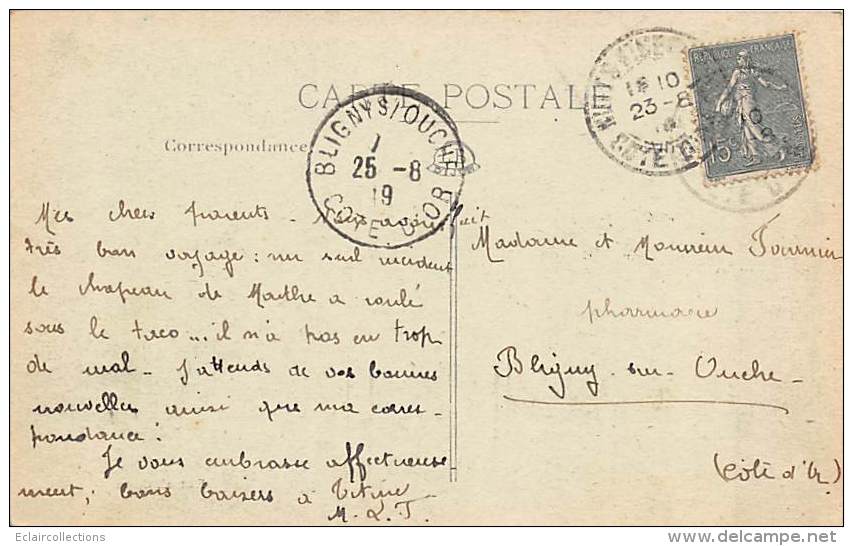 CARTE POSTALE
Correspondance
BLIGNY S/OUCHE
25 -8
19
COTE D'OR
18 10
23-8
REPUBLIQUE FRANÇAISE
15
Mes chers parents - Nous avons fait
très bon voyage : un seul incident
le chapeau de Marthe a roulé
sous le taco... il n'a pas eu trop
de mal - J'attends de vos bonnes
nouvelles ainsi que ma corres-
pondance !
Je vous embrasse affectueuse-
ment, bons baisers à Titine
M. L. T.
Madame et Monsieur Fournier
pharmacie
Bligny-sur-Ouche -
(Côte d'Or)
Eclaircollections
www.delcampe.net